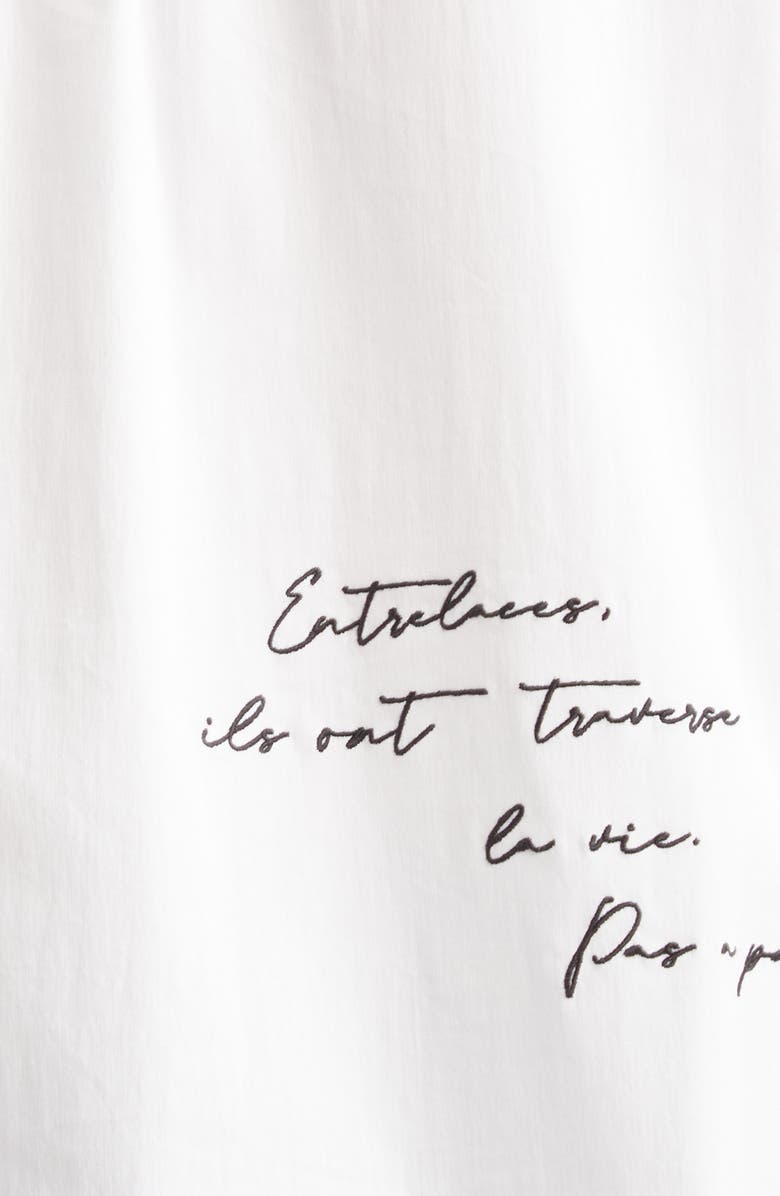 Entrelacees,
ils ont traverse
la vie.
Pas a pa